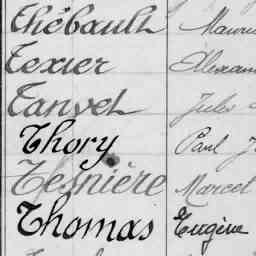 Thébault Mauri
Texier Alexan
Tanvet Jules
Thory Paul J
Tesnière Marcel
Thomas Eugène